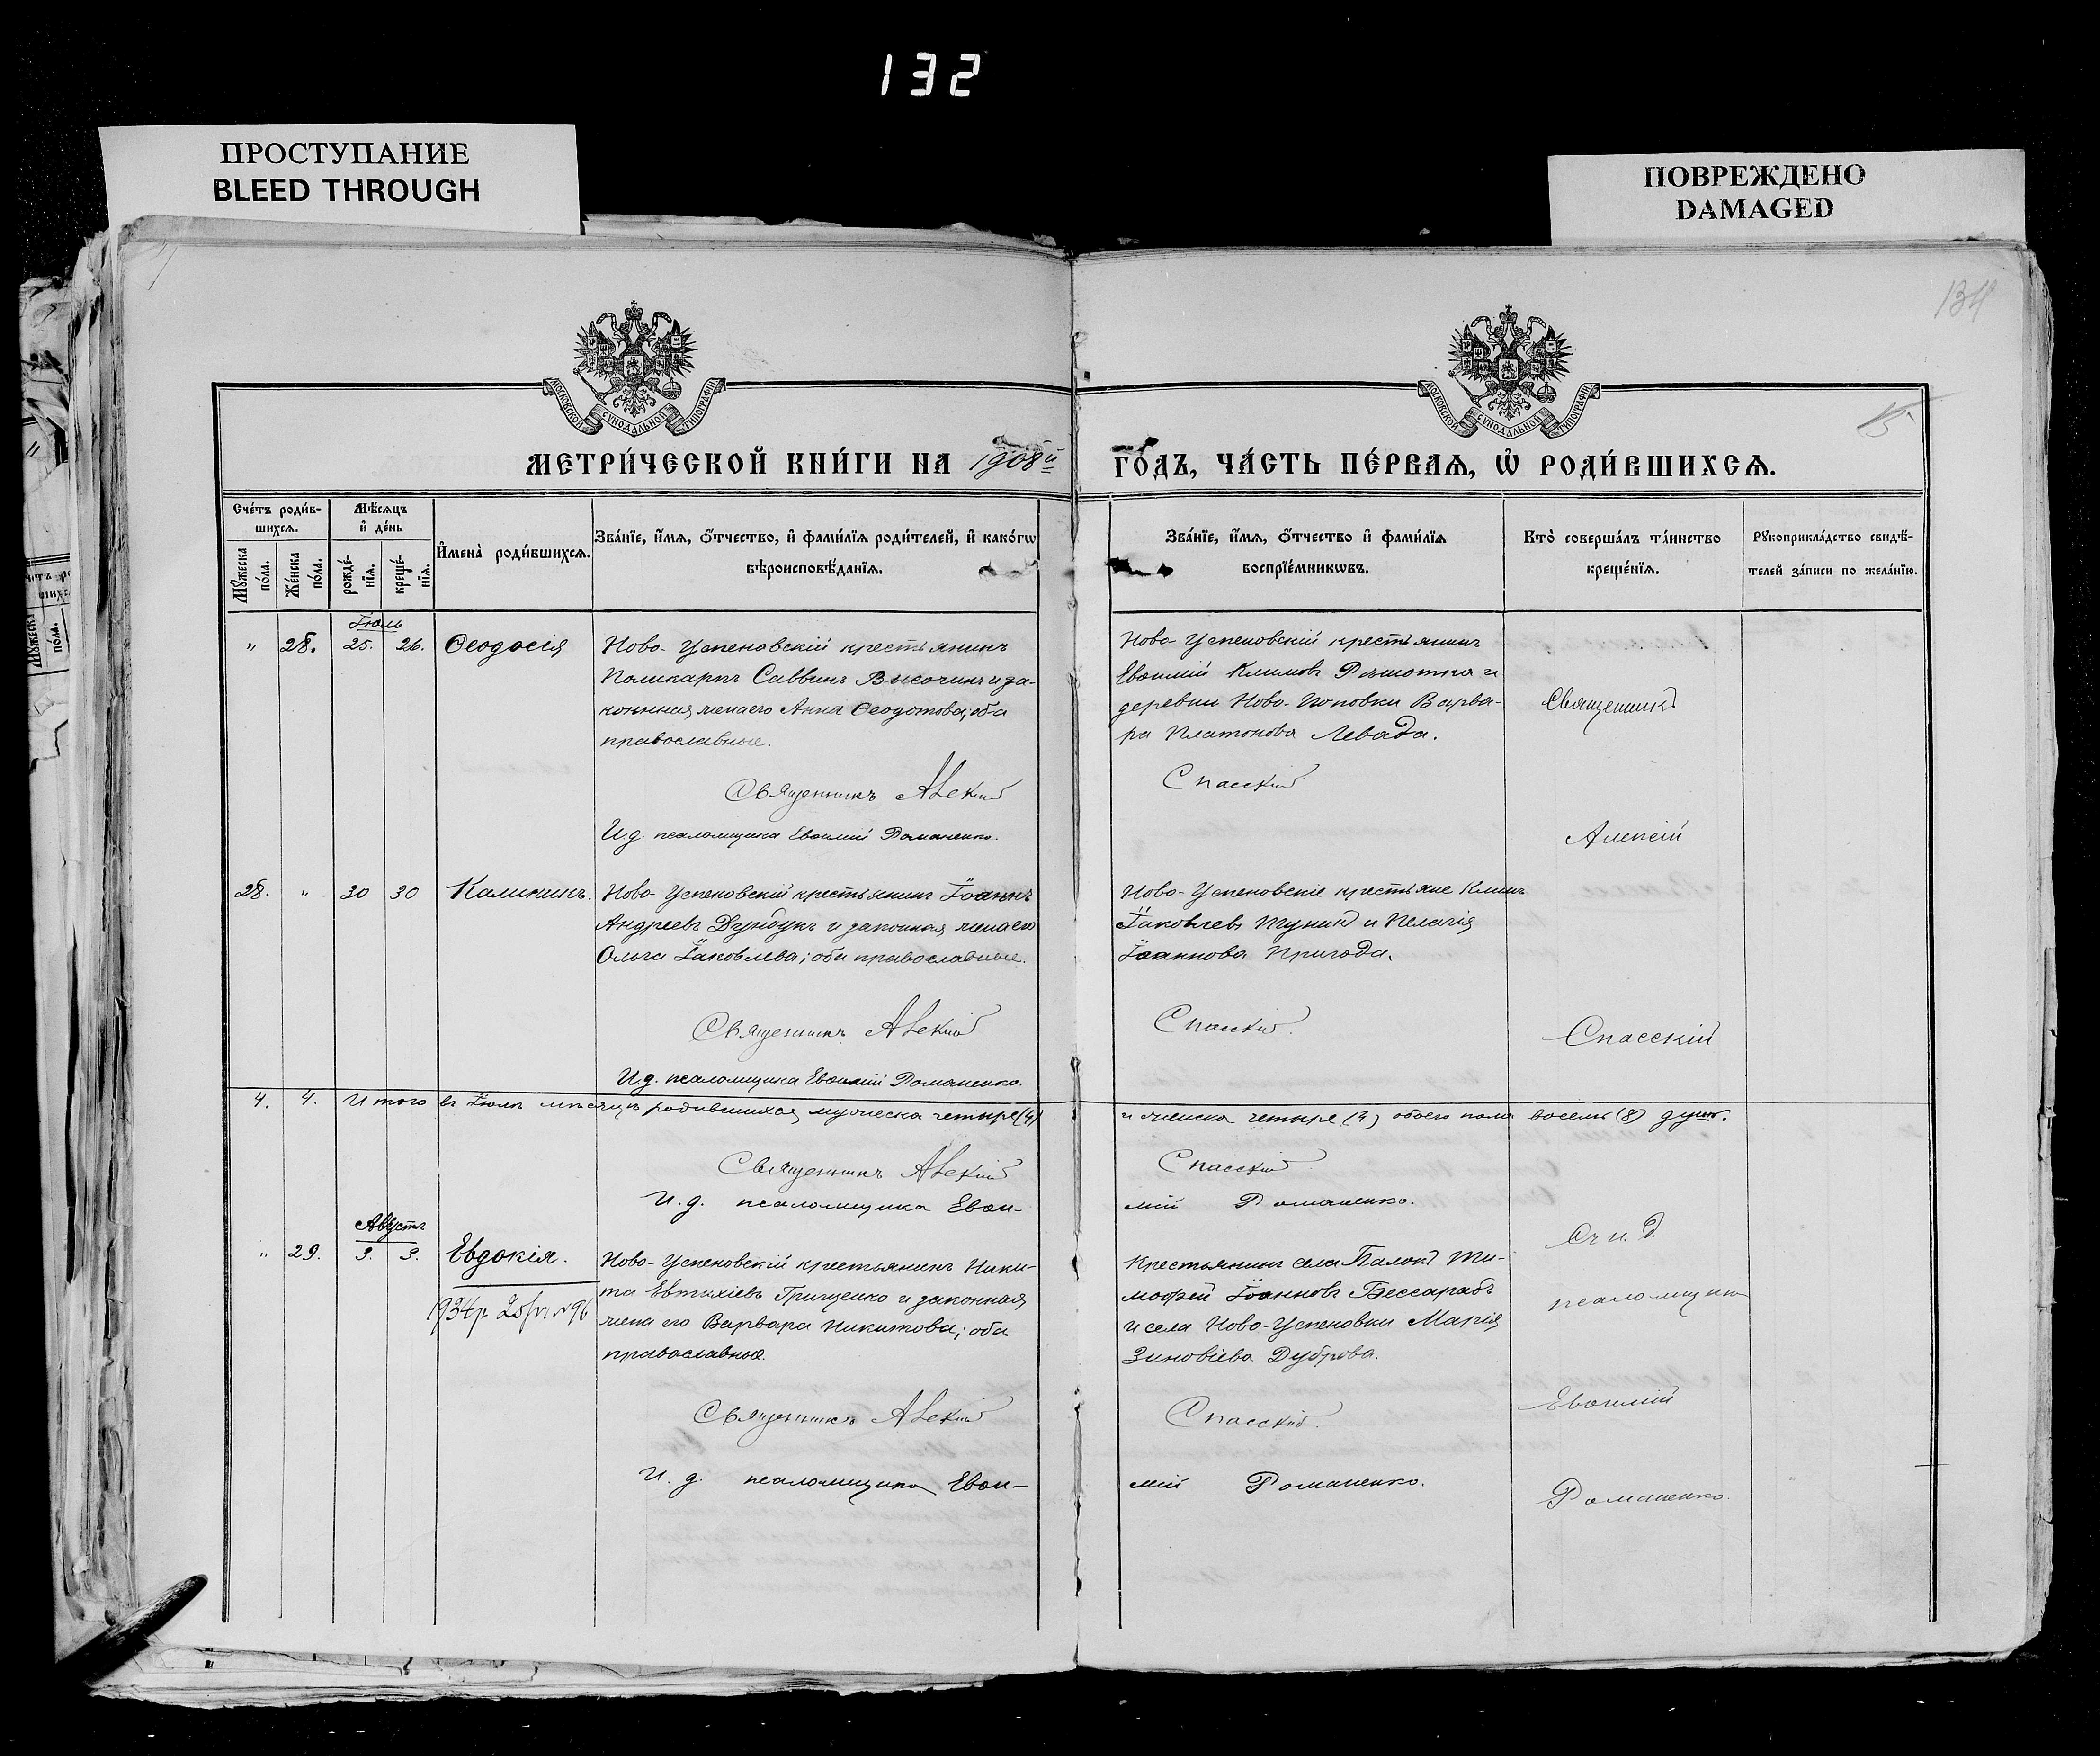 132
ПРОСТУПАНИЕ
BLEED THROUGH
ПОВРЕЖДЕНО
DAMAGED
134
15
МОСКОВСКОЙ СУНОДАЛЬНОЙ ТИПОГРАФІИ
МОСКОВСКОЙ СУНОДАЛЬНОЙ ТИПОГРАФІИ
МЕТРИ́ЧЕСКОЙ КНИ́ГИ НА 1908й ГО́ДЪ, ЧА́СТЬ ПЕ́РВАЯ, Ѡ҆ РОДИ́ВШИХСЯ.
Сче́тъ роди́в-
шихся.
Мꙋ́жеска по́ла.
Же́нска по́ла.
Мѣ́сяцъ
и҆ де́нь
рожде́-
нїя.
креще́-
нїя.
И҆мена̀ роди́вшихся.
Зва́нїе, и҆́мя, ѻ҆́тчество, и҆ фами́лїя роди́телей, и҆ како́гѡ
вѣроисповѣ́данїя.
Зва́нїе, и҆́мя, ѻ҆́тчество и҆ фами́лїя
воспрїе́мникѡвъ.
Кто̀ соверша́лъ та́инство
креще́нїя.
Рꙋкоприкла́дство свидѣ́-
телей за́писи по жела́нїю.
Іюль
" 28. 25. 26. Ѳеодосія
Ново-Успеновскій крестьянинъ
Поликарпъ Саввинъ Высочинъ и за-
конная жена его Анна Ѳеодотова; оба
православные.
Священникъ Алексій
И.д. псаломщика Евѳимій Романенко.
Ново-Успеновскій крестьянинъ
Евѳимій Климовъ и
деревни Ново-Поповки Варва-
ра Платонова Левада.
Спасскій
Священникъ
Алексій
28. " 30 30 Калиникъ.
Ново-Успеновскій крестьянинъ Іоаннъ
Андреевъ Дундукъ и законная жена его
Ольга Іаковлева; оба православные.
Священникъ Алексій
И.д. псаломщика Евѳимій Романенко.
Ново-Успеновскіе крестьяне Климъ
Іаковлевъ Тупикъ и Пелагія
Іоаннова Пригода.
Спасскій.
Спасскій
4. 4. Итого въ Іюлѣ мѣсяцѣ родившихся мужеска четыре (4) и женска четыре (4) обоего пола восемь (8) душъ.
Священникъ Алексій Спасскій
И.д. псаломщика Евѳи- мій Романенко.
Августъ
" 29. 3. 3. Евдокія.
1934р
Ново-Успеновскій крестьянинъ Ники-
та Евтихіевъ Грищенко и законная
жена его Варвара Никитова; оба
православные.
Крестьянинъ села Балокъ Ти-
моѳей Іоанновъ Бессарабъ
и села Ново-Успеновки Марія
Зиновіева Дуброва.
Съ и. д.
псаломщик
Евѳимій
Романенко.
Священникъ Алексій Спасскій.
И. д. псаломщика Евѳи- мій Романенко.